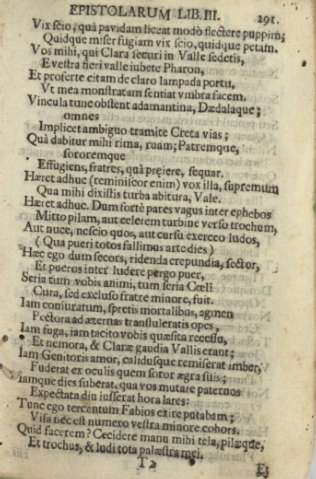 EPISTOLARUM LIB. III. 291.
Vix scio, quà pavidam liceat modò flectere puppim;
Quidque miser fugiam vix scio, quidque petam.
Vos mihi, qui Clara securi in Valle sedetis,
E vestra fieri valle iubete Pharon,
Et proferte citam de claro lampada portu,
Vt mea monstratam sentiat vmbra facem.
Vincula tunc obstent adamantina, Dædalaque;
omnes
Implicet ambiguo tramite Creta vias;
Quà dabitur mihi rima, ruam; Patremque,
sororemque
Effugiens, fratres, quà preiere, sequar.
Hæret adhuc (reminiscor enim) vox illa, supremum
Qua mihi dixistis turba abitura, Vale.
Hæret adhuc. Dum fortè pares vagus inter ephebos
Mitto pilam, aut celerem turbine verso trochum,
Aut nuce, nescio quos, aut cursu exerceo ludos,
(Qua pueri totos fallimus arte dies)
Hæc ego dum secors, ridenda crepundia, sector,
Et pueros inter ludere pergo puer,
Seria tum vobis animi, tum seria Cœli
Cura, sed excluso fratre minore, fuit.
Iam coniuratum, spretis mortalibus, agmen
Pectora ad æternas transtuleratis opes,
Iam fuga, iam tacito vobis quæsita recessu,
Et nemora, & Claræ gaudia Vallis erant;
Iam Genitoris amor, calidusque remiserat imber,
Fuderat ex oculis quem soror ægra suis;
Iamque dies suberat, qua vos mutare paternos
Expectata diu iusserat hora lares:
Tunc ego tercentum Fabios exire putabam;
Visa nec est numero vestra minore cohors.
Quid facerem? Cecidere manu mihi tela, pilæque,
Et trochus, & ludi tota palæstra mei.
T 2
Et